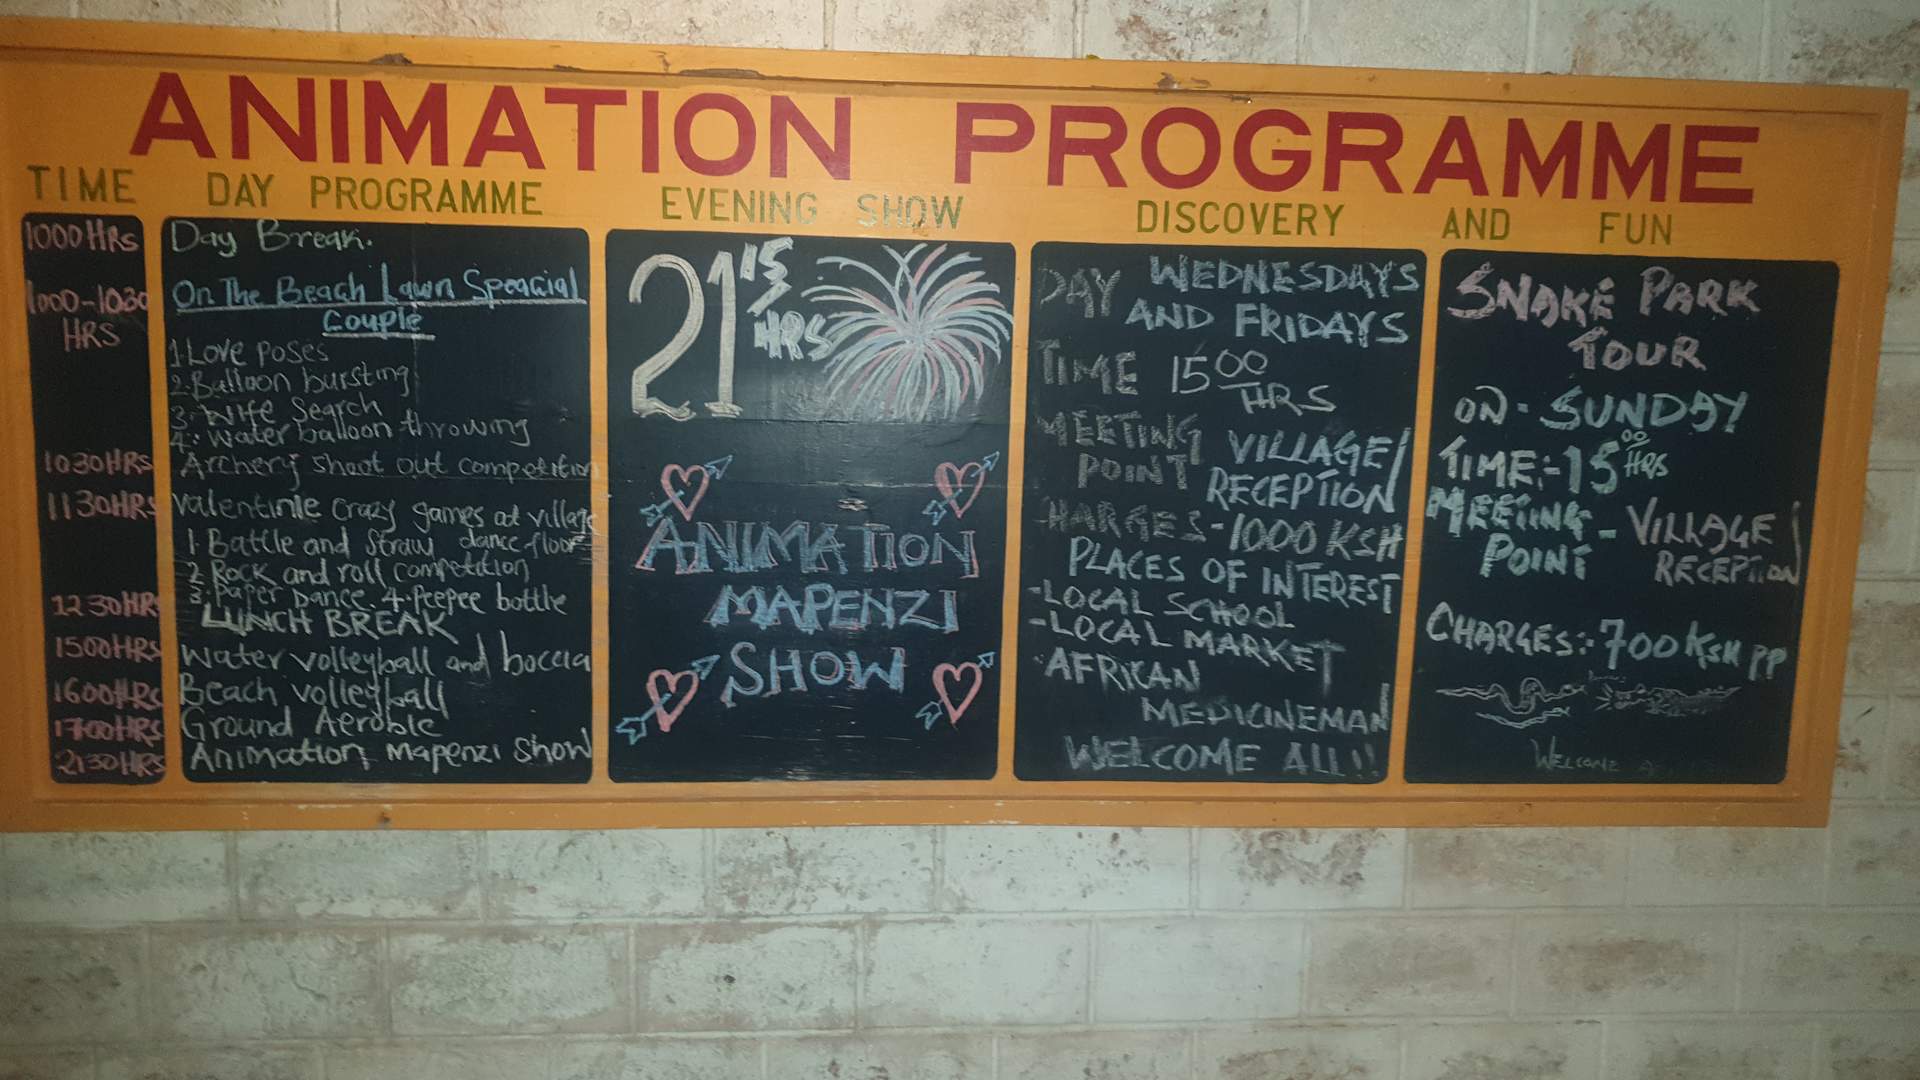 ANIMATION PROGRAMME
TIME
1000HRS
1000-1030
HRS
1030HRS
1130HRS
1230HR
1500HRS
1600HRS
1700HRS
2130HRS
DAY PROGRAMME
Day Break.
On The Beach Lawn Speacial
Couple
1. Love poses
2. Balloon bursting
3. Wife Search
4. Water balloon throwing
Archery shoot out competition
Valentinle crazy games at village
1. Battle and Straw dance floor
2 Rock and roll competition
3. Paper Dance. 4. Peepee bottle
LUNCH BREAK
Water volleyball and boccia
Beach volleyball
Ground Aerobic
Animation Mapenzi Show
EVENING SHOW
21 15 HRS
ANIMATION
MAPENZI
SHOW
DISCOVERY AND FUN
DAY WEDNESDAYS
AND FRIDAYS
TIME 15 00
HRS
MEETING VILLAGE/
POINT RECEPTION
CHARGES-1000 KSH
PLACES OF INTEREST
-LOCAL SCHOOL
-LOCAL MARKET
-AFRICAN
MEDICINEMAN
WELCOME ALL!!
SNAKE PARK
TOUR
ON - SUNDAY
TIME:-15 00 HRS
MEETING - VILLAGE /
POINT RECEPTION
CHARGES:-700 KSH PP
WELCOME